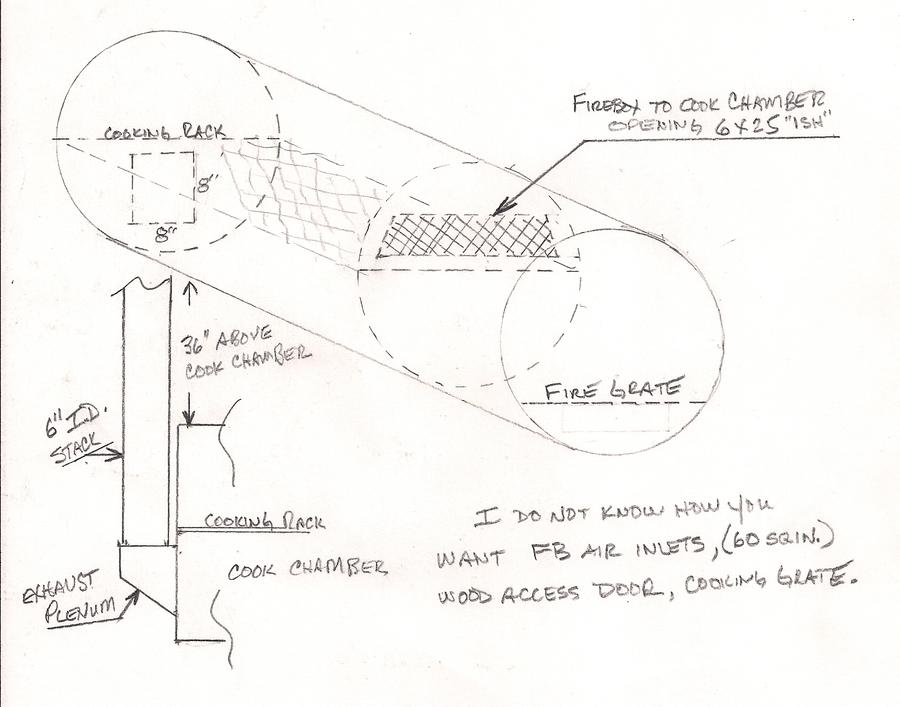 FIREBOX TO COOK CHAMBER
OPENING 6X25 "ISH"
COOKING RACK
8"
8"
36" ABOVE
COOK CHAMBER
FIRE GRATE
6" I.D.
STACK
COOKING RACK
COOK CHAMBER
EXHAUST
PLENUM
I DO NOT KNOW HOW YOU
WANT FB AIR INLETS, (60 SQ.IN.)
WOOD ACCESS DOOR, COOKING GRATE.